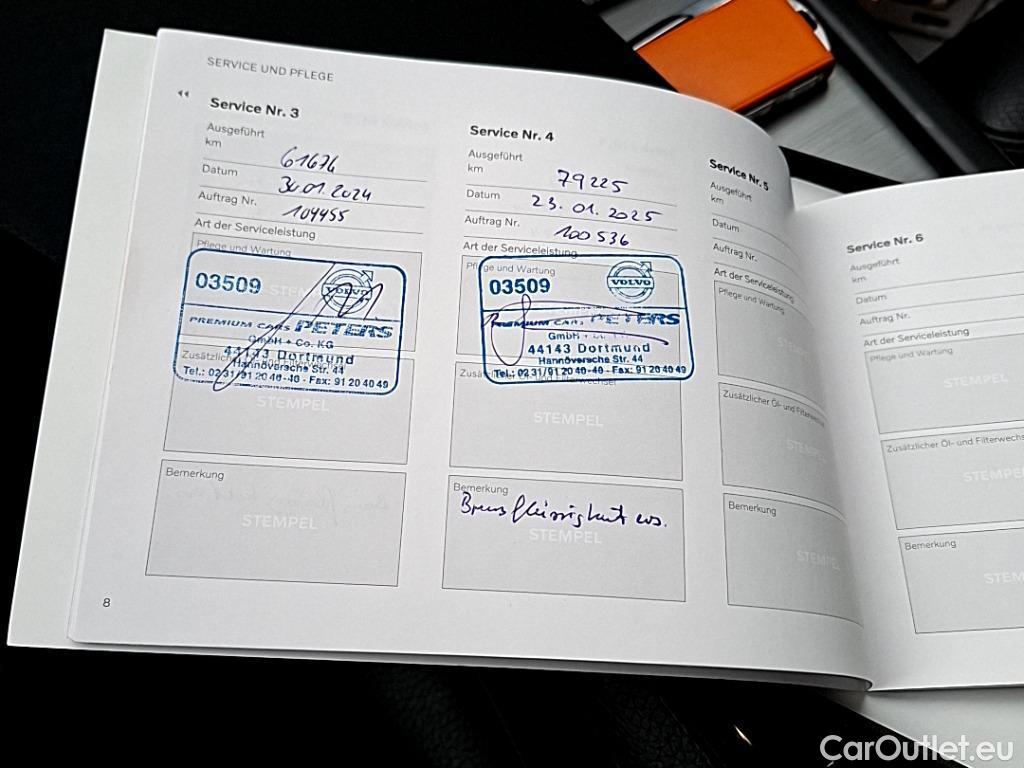 SERVICE UND PFLEGE
Service Nr. 3
Ausgeführt
km 61674
Datum 30.01.2024
Auftrag Nr. 104455
Art der Serviceleistung
Pflege und Wartung
03509
VOLVO
PREMIUM CARS PETERS
GmbH + Co. KG
44143 Dortmund
Hannöversche Str. 44
Tel.: 02 31/91 20 40-40 - Fax: 91 20 40 49
STEMPEL
Bemerkung
STEMPEL
8
Service Nr. 4
Ausgeführt
km 79225
Datum 23.01.2025
Auftrag Nr. 100536
Art der Serviceleistung
Pflege und Wartung
03509
VOLVO
PREMIUM CARS PETERS
GmbH + Co.
44143 Dortmund
Hannöversche Str. 44
Tel.: 02 31/91 20 40-40 - Fax: 91 20 40 49
Zusätzlicher Öl- und Filterwechsel
STEMPEL
Bemerkung
Bremsflüssigkeit ers.
STEMPEL
Service Nr. 5
Ausgeführt
km
Datum
Auftrag Nr.
Art der Serviceleistung
Pflege und Wartung
Zusätzlicher Öl- und Filterwechs
Bemerkung
STEMPEL
Service Nr. 6
Ausgeführt
km
Datum
Auftrag Nr.
Art der Serviceleistung
Pflege und Wartung
STEMPEL
Zusätzlicher Öl- und Filterwechs
STEMPEL
Bemerkung
STEM
CarOutlet.eu